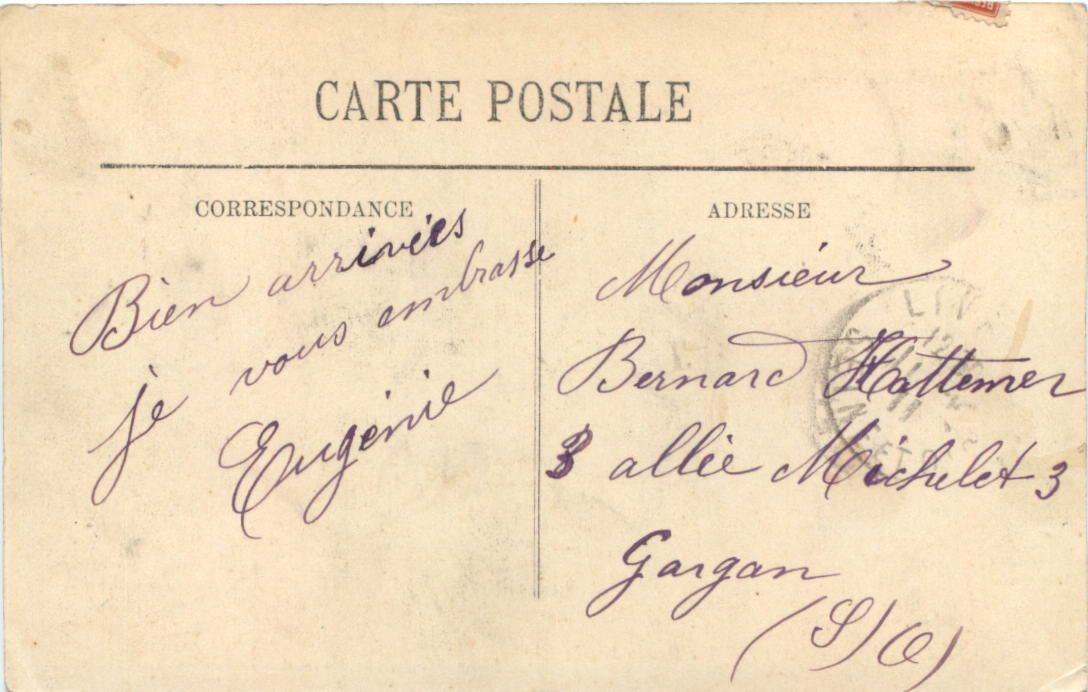 CARTE POSTALE
CORRESPONDANCE
Bien arrivées
je vous embrasse
Eugénie
ADRESSE
Monsieur
Bernard Hattemer
3 allée Michelet 3
Gargan
(S/O)
LIV